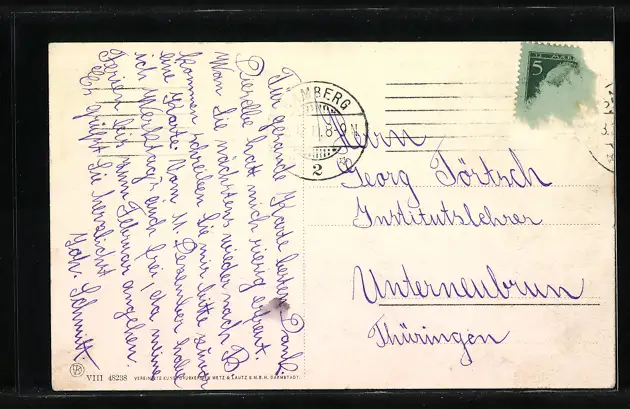 Für gesandte Karte besten Dank.
Dieselbe hat mich riesig erfreut.
Wan Sie nächstens wieder nach B
kommen schreiben Sie mir bitte zuvor
eine Karte. Vom 11. Dezember habe
ich Werktags auch frei, da meine
Ferien bis zum Februar angehen.
Es grüßt Sie herzlichst
Joh. Schmitt.
MBERG
2
5
Herrn
Georg Törtsch
Institutslehrer
Unterneubrun
Thüringen
VIII 48238 VEREINIGTE KUNSTDRUCKEREIEN METZ & LAUTZ G.M.B.H. DARMSTADT.